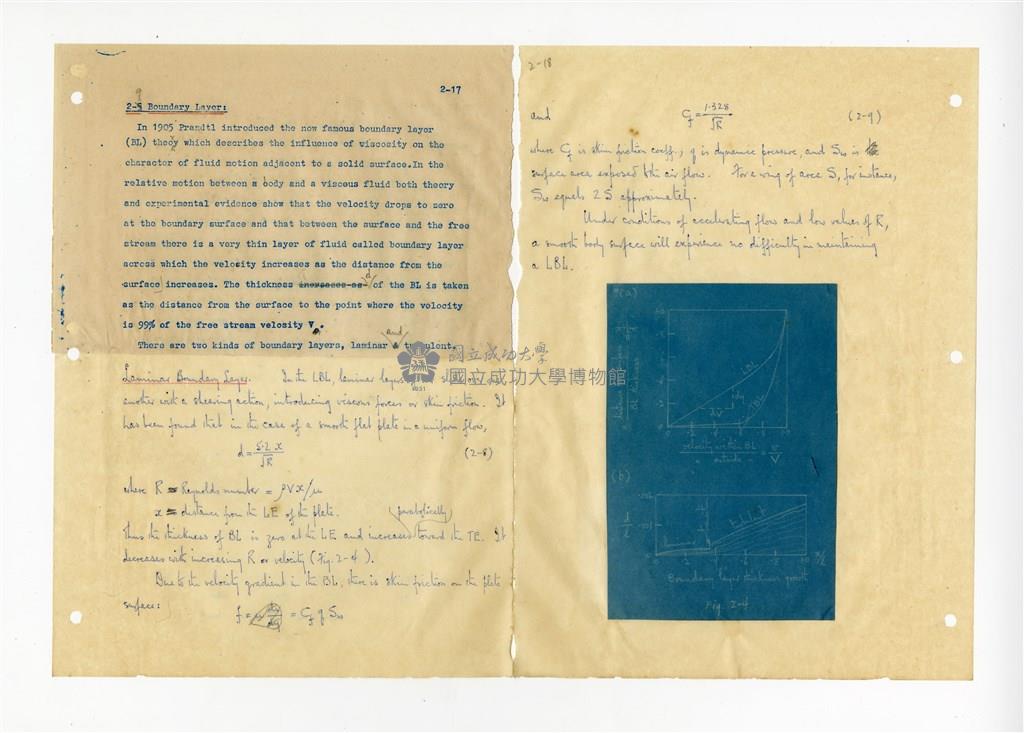 2-17
9
2-5 Boundary Layer:
In 1905 Prandtl introduced the now famous boundary layer
(BL) theoy which describes the influence of viscosity on the
character of fluid motion adjacent to a solid surface.In the
relative motion between a body and a viscous fluid both theory
and experimental evidence show that the velocity drops to zero
at the boundary surface and that between the surface and the free
stream there is a very thin layer of fluid called boundary layer
across which the velosity increases as the distance from the
surface increases. The thickness increases as d of the BL is taken
as the distance from the surface to the point where the velocity
is 99% of the free stream velosity V.
There are two kinds of boundary layers, laminar and turbulent.
Laminar Boundary Layer. In the LBL, laminar layers
another with a shearing action, introducing viscous forces or skin friction. It
has been found that in the case of a smooth flat plate in a uniform flow,
d = 5.2 x / √R (2-8)
where R = Reynolds number = ρVx/μ
x = distance from the LE of the plate.
Thus the thickness of BL is zero at the LE and increases parabolically toward the TE. It
decreases with increasing R or velocity (Fig. 2-4).
Due to the velocity gradient in the BL, there is skin friction on the plate
surface:
f = = Cf q Sw
2-18
and Cf = 1.328 / √R (2-9)
where Cf is skin friction coeff., q is dynamic pressure, and Sw is the
surface area exposed the air flow. For a wing of area S, for instance,
Sw equals 2S approximately.
Under conditions of accelerating flow and low values of R,
a smooth body surface will experience no difficulty in maintaining
a LBL.
(a)
LBL
TBL
velocity within BL
" outside " = v/V
(b)
x/L
Boundary layer thickness growth
Fig. 2-4
1931
國立成功大學
國立成功大學博物館